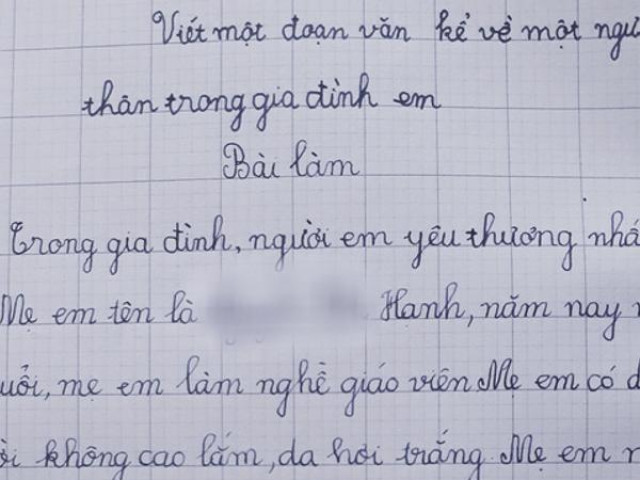 Viết một đoạn văn kể về một
thân trong gia đình em
Bài làm
Trong gia đình, người em yêu thương
Mẹ em tên là Hạnh, năm nay
mẹ em làm nghề giáo viên Mẹ em có
không cao lắm, da hơi trắng. Mẹ em